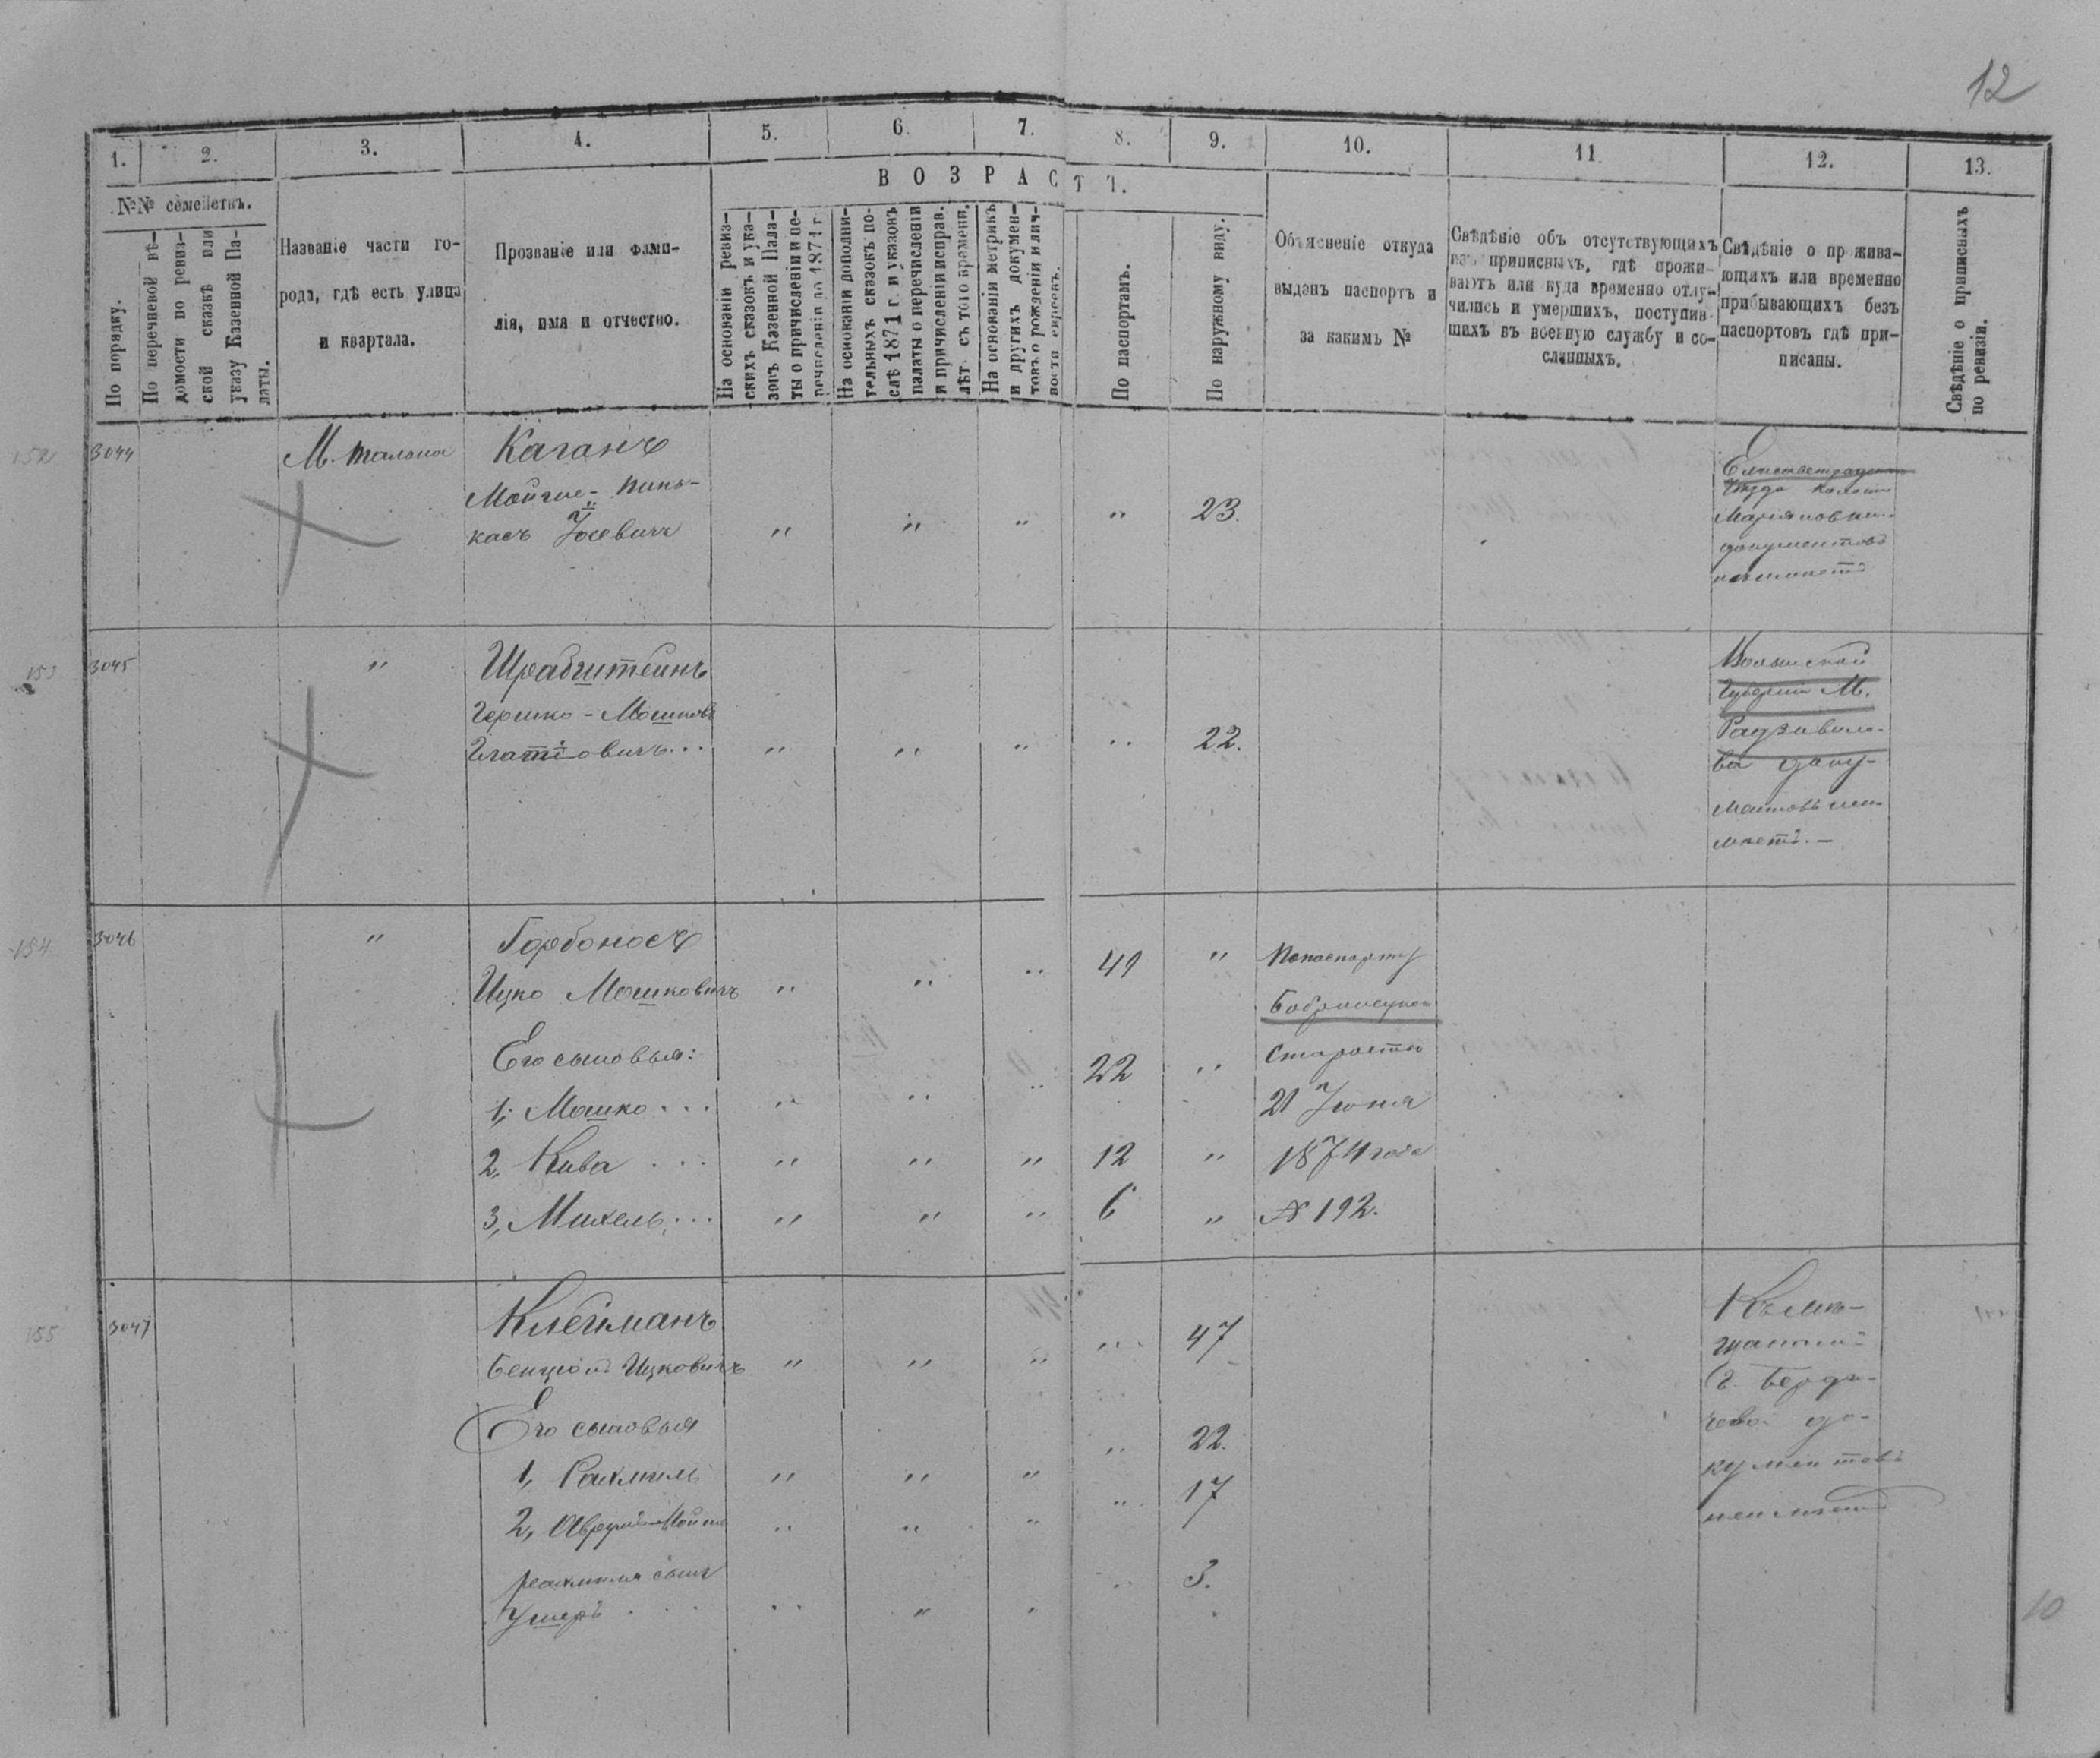 12
1. 2. 3. 4. 5. 6. 7. 8. 9. 10. 11. 12. 13.
№№ семействъ.
По порядку.
По перечневой вѣ-
домости по ревиз-
ской сказкѣ или
указу Казенной Па-
латы.
Названіе части го-
рода, гдѣ есть улица
и квартала.
Прозваніе или фами-
лія, имя и отчество.
ВОЗРАСТЪ.
На основаніи ревиз-
скихъ сказокъ и ука-
зовъ Казенной Пала-
ты о причисленіи и пе-
речисленіи до 1871 г.
На основаніи дополни-
тельныхъ сказокъ по-
слѣ 1871 г. и указовъ
палаты о перечисленіи
и причисленіи исправ.
лѣт. съ того времени.
На основаніи метрикъ
и другихъ докумен-
товъ о рожденіи и лич-
ности евреевъ.
По паспортамъ.
По наружному виду.
Объясненіе откуда
выданъ паспортъ и
за какимъ №
Свѣдѣніе объ отсутствующихъ
изъ приписныхъ, гдѣ прожи-
ваютъ или куда временно отлу-
чились и умершихъ, поступив-
шихъ въ военную службу и со-
сланныхъ.
Свѣдѣніе о прожива-
ющихъ или временно
прибывающихъ безъ
паспортовъ гдѣ при-
писаны.
Свѣдѣніе о приписныхъ
по ревизіи.
152 3044 М. Тальное Каганъ
Мойше-Пинь-
касъ Іосевичъ " " " " 23.
Елисаветрадскаго
уѣзда
документовъ
неимѣетъ
153 3045 " Шрабштейнъ
Гершко-Мошковъ
" " " " 22.
Волынской
Губерніи М.
Радзивило-
ва доку-
ментовъ неи-
мѣетъ.-
154 3046 " Горбоносъ
Ицко Мошковичъ " " " 41 "
Его сыновья:
1, Мошко... " " " 22 "
2, Кива ... " " " 12 "
3, Михель... " " " 6 "
Попаспорту
Старосты
21 Іюня
1874 года
№ 192.
155 3047 Клейманъ
Бенціонъ Ицковичъ " " " " 47
Его сыновья
1, Рахмиль " " " " 22.
2, Аврумъ-Мойше " " " " 17
Рахмиля сынъ
Ушеръ . . . " " " " 3.
Къ мѣ-
щанамъ
г. Берди-
чева до-
кументовъ
неимѣетъ
10